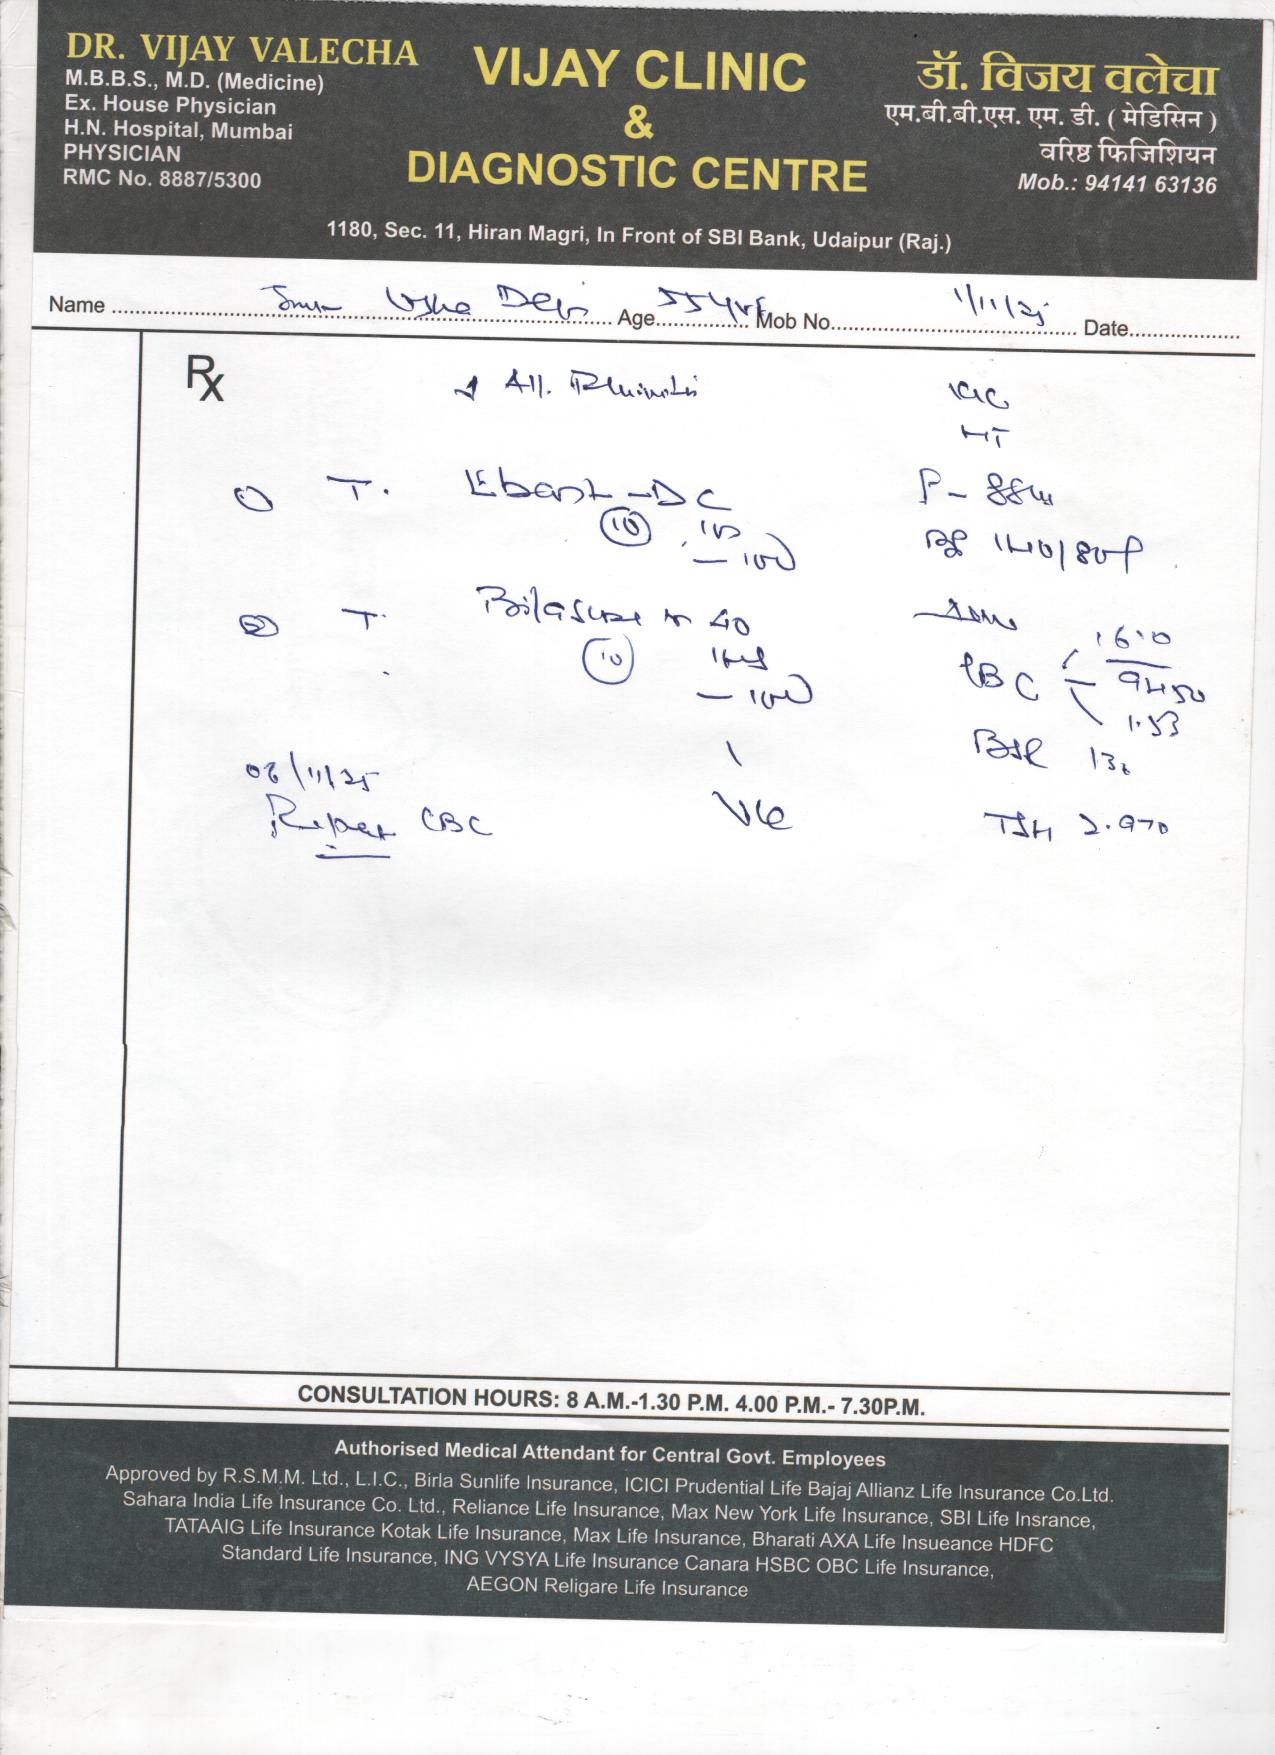 DR. VIJAY VALECHA
M.B.B.S., M.D. (Medicine)
Ex. House Physician
H.N. Hospital, Mumbai
PHYSICIAN
RMC No. 8887/5300
VIJAY CLINIC
&
DIAGNOSTIC CENTRE
डॉ. विजय वलेचा
एम.बी.बी.एस. एम. डी. ( मेडिसिन )
वरिष्ठ फिजिशियन
Mob.: 94141 63136
1180, Sec. 11, Hiran Magri, In Front of SBI Bank, Udaipur (Raj.)
Name Usha Devi Age 55yrs Mob No. 1/11/25 Date
Rx
All.
HT
① T. Ebast-DC
P-
⑩
BP 140/80
② T. 40
⑩
CBC 9450
1.53
BSR
/11/25
Repeat CBC
TSH 2.970
CONSULTATION HOURS: 8 A.M.-1.30 P.M. 4.00 P.M.- 7.30P.M.
Authorised Medical Attendant for Central Govt. Employees
Approved by R.S.M.M. Ltd., L.I.C., Birla Sunlife Insurance, ICICI Prudential Life Bajaj Allianz Life Insurance Co.Ltd.
Sahara India Life Insurance Co. Ltd., Reliance Life Insurance, Max New York Life Insurance, SBI Life Insrance,
TATAAIG Life Insurance Kotak Life Insurance, Max Life Insurance, Bharati AXA Life Insueance HDFC
Standard Life Insurance, ING VYSYA Life Insurance Canara HSBC OBC Life Insurance,
AEGON Religare Life Insurance